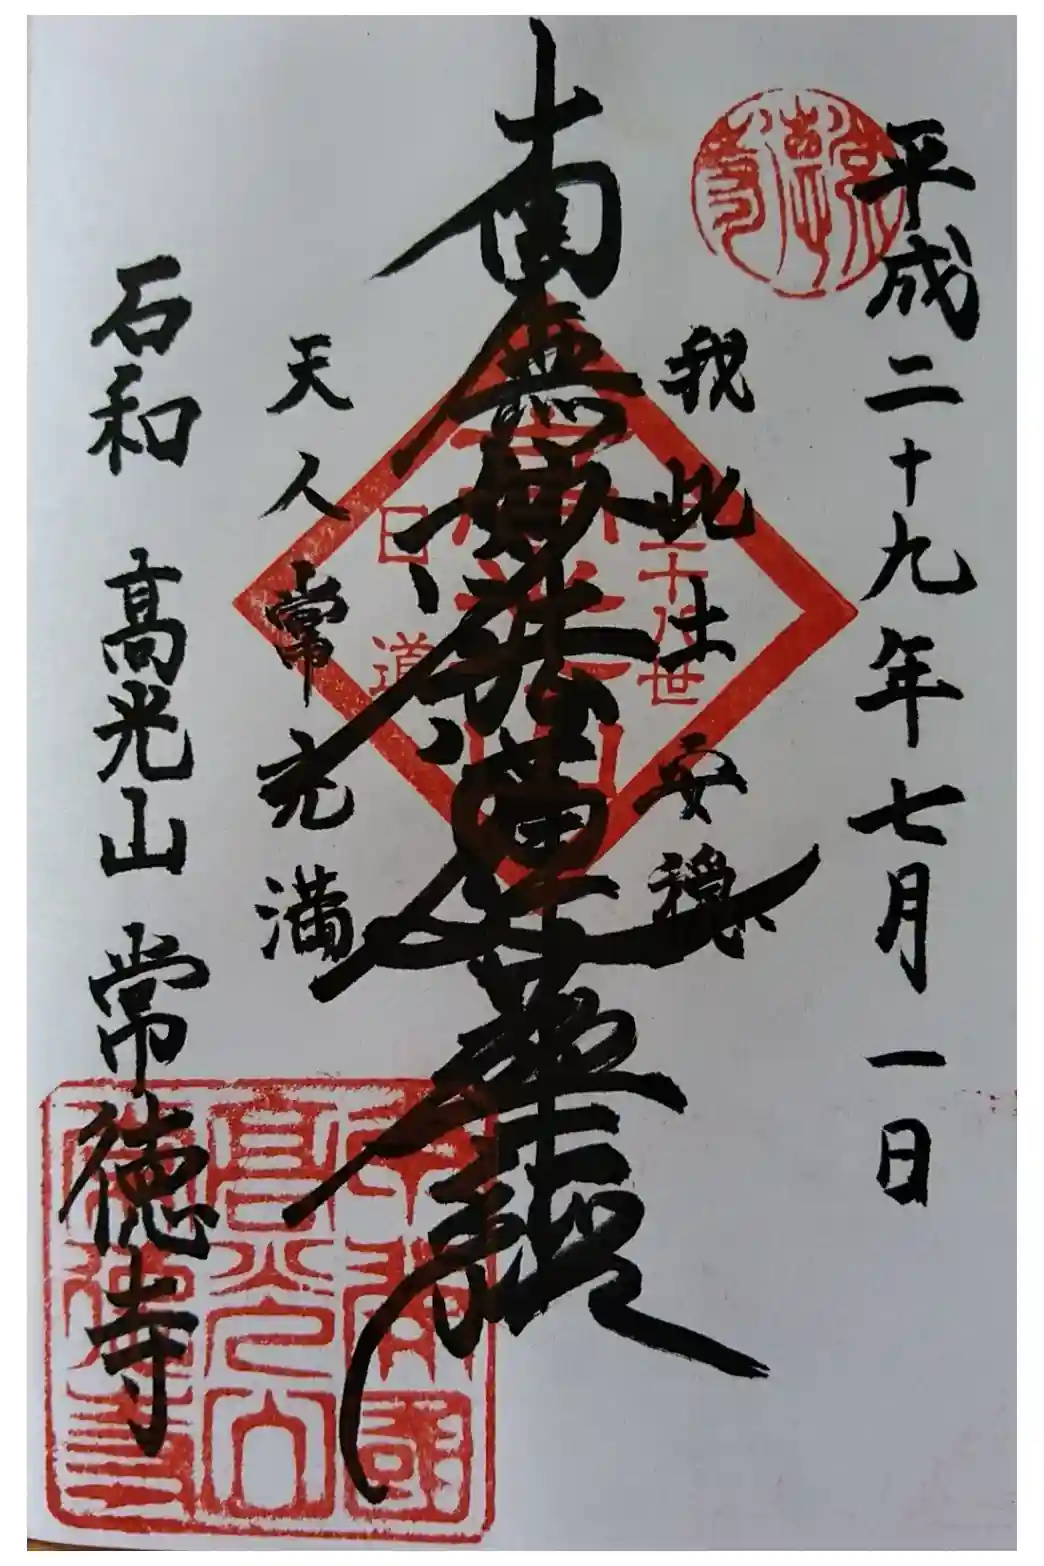 平成二十九年七月一日
我此土安穏
南無妙法蓮華経
天人常充満
石和 髙光山 常徳寺
常徳寺
三十八世
日道
甲斐國
高光山
常德寺